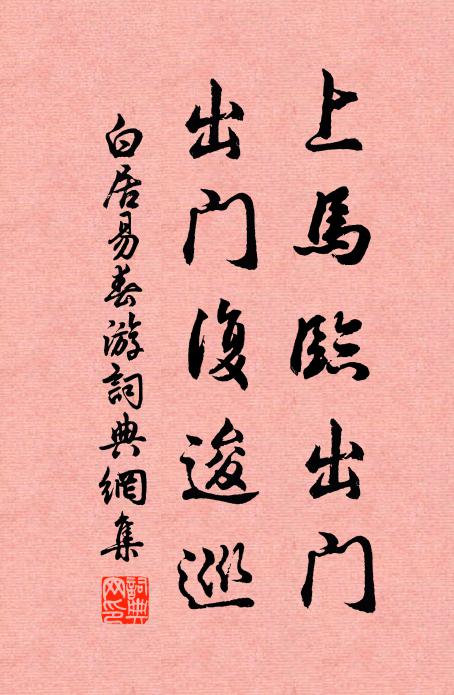 上馬臨出門
出門復逡巡
白居易春游詞典網集
詞典网印